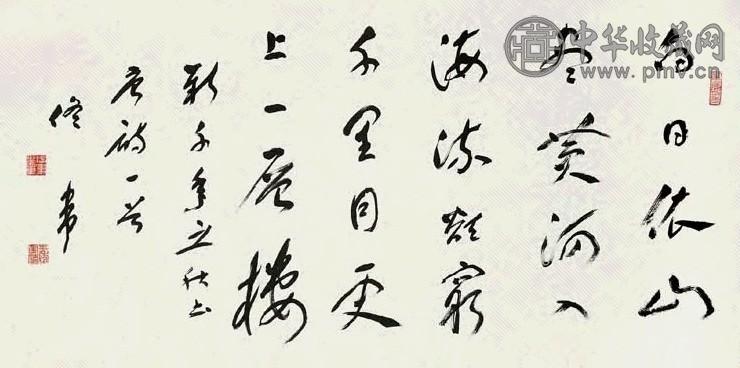 白日依山
尽黄河入
海流欲窮
千里目更
上一层樓
新千年立秋书
唐诗一首
中华收藏网
www.pmv.cn